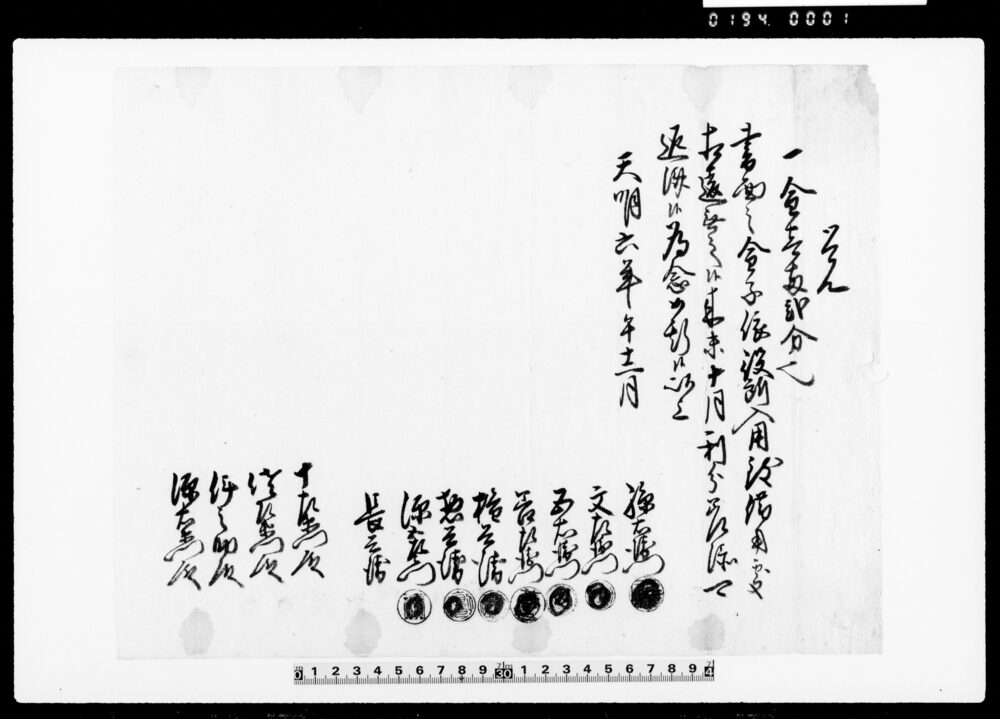 0194 0001
覚
一金壱両弐分也
書面之金子依役所入用致借用処
相違無之候来未十月利分足添可
返済候為念如斯候以上
天明六年午十二月
孫右衛門
文左衛門
五右衛門
権兵衛
惣兵衛
源左衛門
長兵衛
十左衛門殿
伴之助殿
源右衛門殿
0 1 2 3 4 5 6 7 8 9 30 1 2 3 4 5 6 7 8 9 4